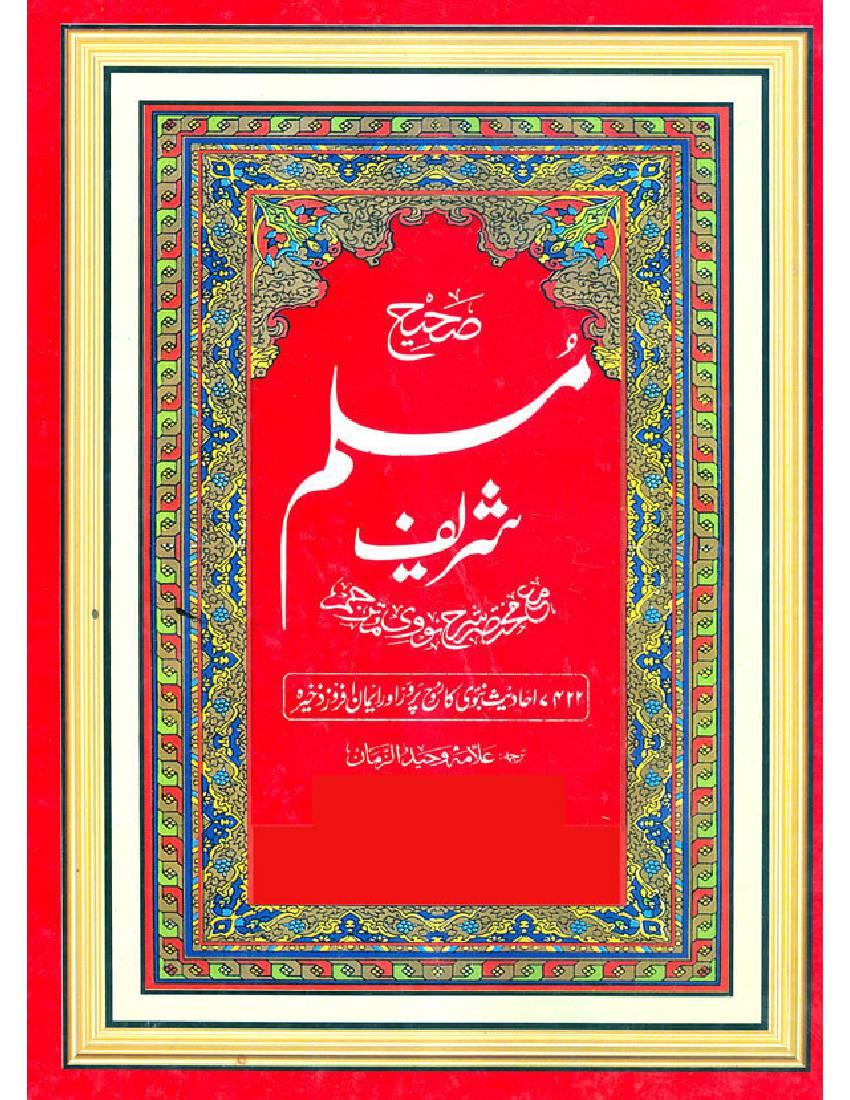 صَحِیْح
مُسلم
شریف
مع مختصر شرح نووی مترجم
۷۴۲۲ احادیث نبوی کا روح پرور اور ایمان افروز ذخیرہ
ترجمہ: علامہ وحید الزمان